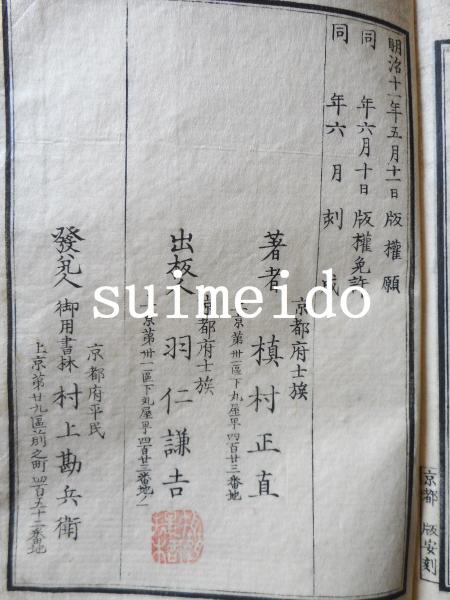 明治十一年五月十一日版權願
同 年六月十日版權免許
同 年六月刻成
著者
京都府士族
槙村正直
上京第卅一區下丸屋甼四百廿三番地
出板人
京都府士族
羽仁謙吉
上京第卅一區下丸屋甼四百廿三番地ノ一
發兌人
御用書林
京都府平民
村上勘兵衛
上京第廿九區前之町四百五十二番地
京都 版安刻
suimeido